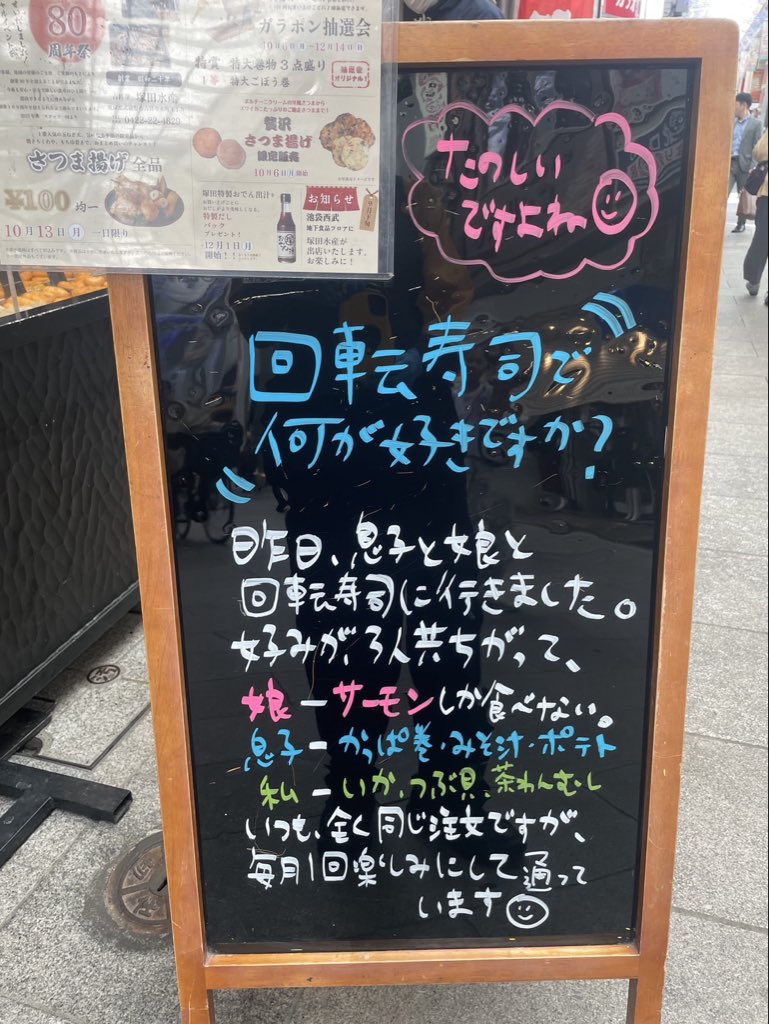 80
周年祭
塚田水産
0422-22-4829
さつま揚げ 全品
¥100 均一
10月13日(月) 一日限り
ガラポン抽選会
10月6日(月)~12月14日(日)
特賞 特大巻物3点盛り
1等 特大ごぼう巻
抽選会
オリジナル!
贅沢
さつま揚げ
限定販売
10月6日(月)開始
塚田特製おでん出汁
特製だし
パック
プレゼント!
12月1日(月)
開始!!
お知らせ
池袋西武
地下食品フロアに
塚田水産が
出店いたします。
お楽しみに!
たのしい
ですよね
回転寿司で
何が好きですか?
昨日、息子と娘と
回転寿司に行きました。
好みが、3人共ちがって、
娘ーサーモンしか食べない。
息子ーかっぱ巻・みそ汁・ポテト
私ーいか、つぶ貝、茶わんむし
いつも、全く同じ注文ですが、
毎月1回楽しみにして通って
います